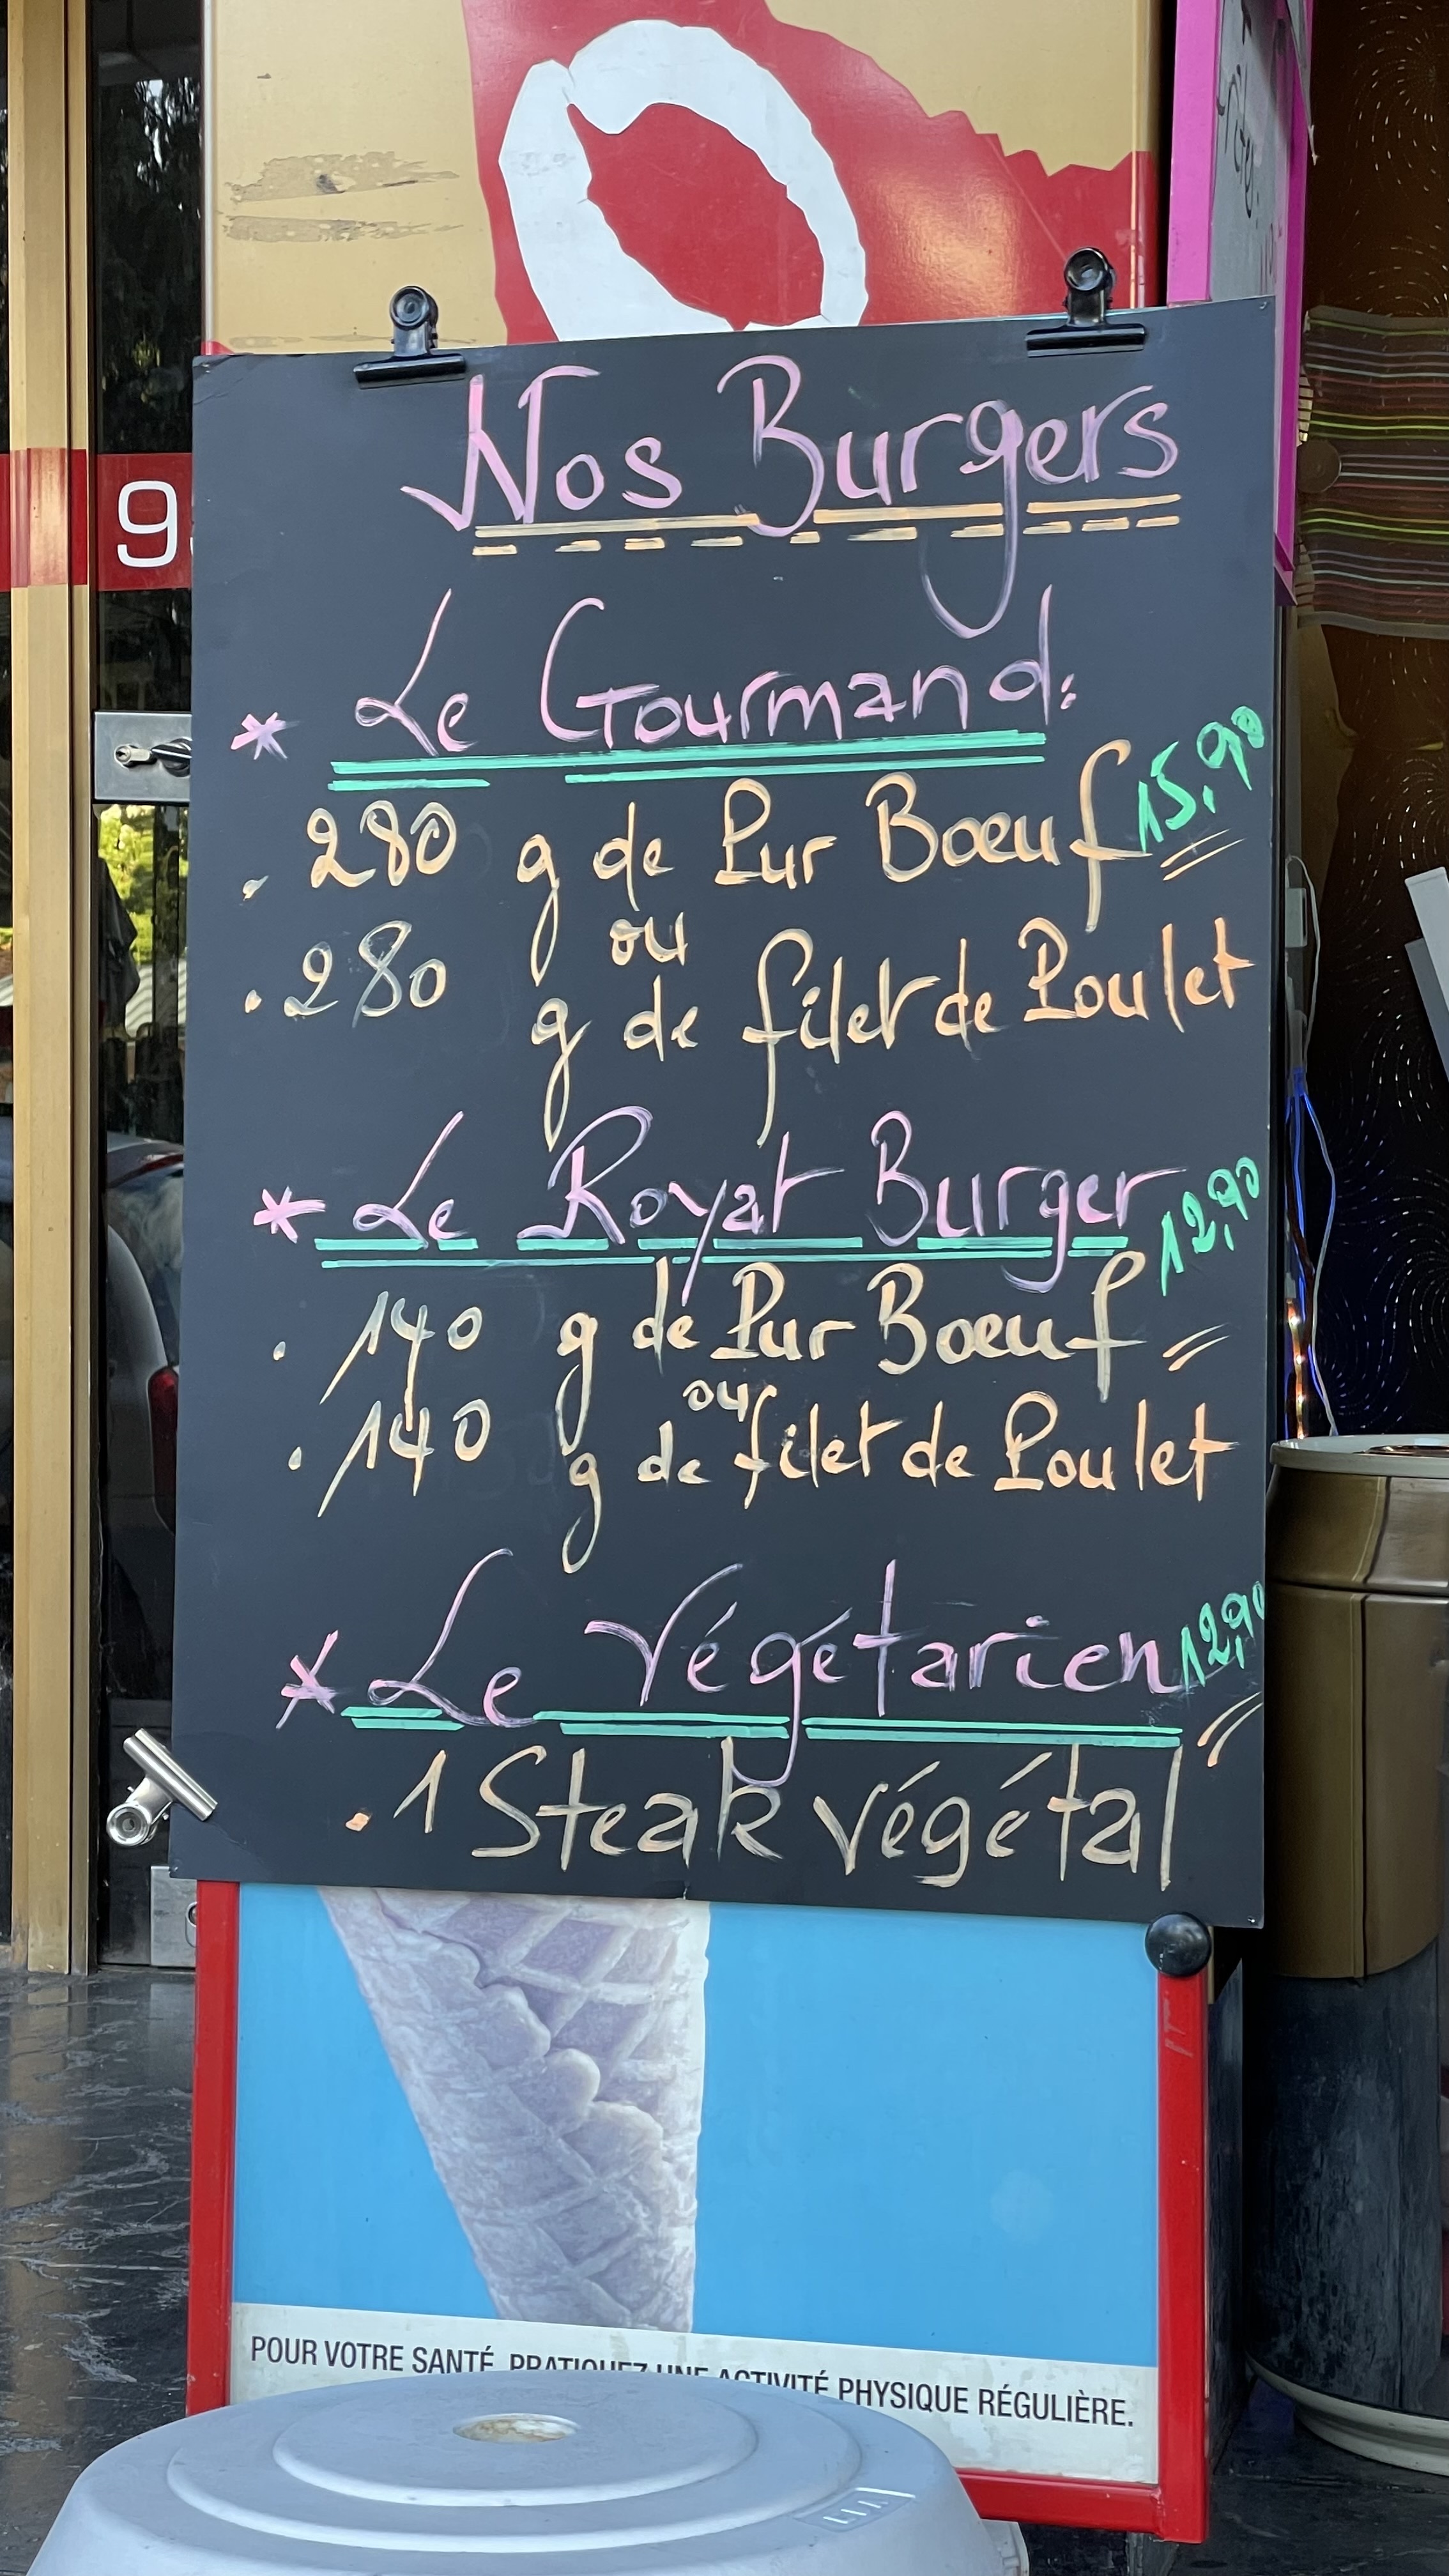 9
Nos Burgers
* Le Gourmand:
15,90
. 280 g de Pur Bœuf
ou
. 280 g de filet de Poulet
* Le Royat Burger
12,90
. 140 g de Pur Bœuf
ou
. 140 g de filet de Poulet
* Le Végétarien
12,90
. 1 Steak végétal
POUR VOTRE SANTÉ, PRATIQUEZ UNE ACTIVITÉ PHYSIQUE RÉGULIÈRE.